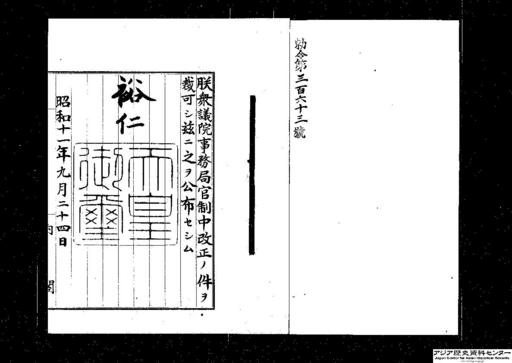 勅令第三百六十三號
朕衆議院事務局官制中改正ノ件ヲ
裁可シ茲ニ之ヲ公布セシム
裕仁
天皇御璽
昭和十一年九月二十四日
内閣
アジア歴史資料センター
Japan Center for Asian Historical Records